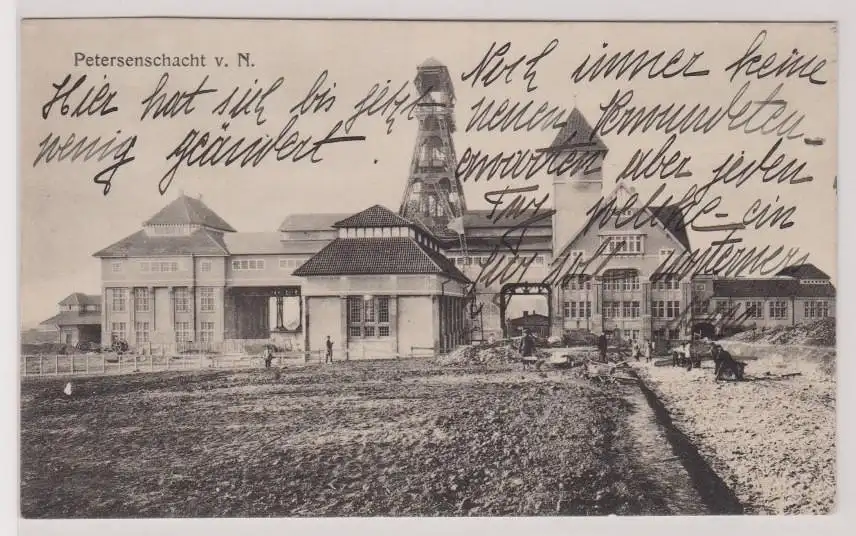 Petersenschacht v. N.
Hier hat sich bis jetzt
wenig geändert.
Noch immer keine
neuen Verwundeten
erwarten aber jeden
Tag welche - ein